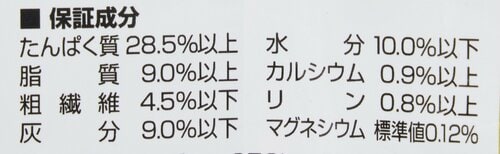 ■ 保証成分
たんぱく質 28.5%以上
脂質 9.0%以上
粗繊維 4.5%以下
灰分 9.0%以下
水分 10.0%以下
カルシウム 0.9%以上
リン 0.8%以上
マグネシウム 標準値0.12%